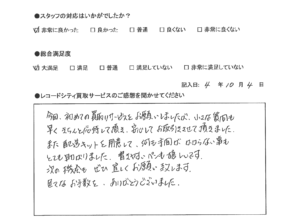 ●スタッフの対応はいかがでしたか?
☑非常に良かった □良かった □普通 □良くない □非常に良くない
●総合満足度
☑大満足 □満足 □普通 □満足していない □非常に満足していない
記入日: 4 年 10 月 4 日
●レコードシティ買取サービスのご感想を聞かせてください
今回、初めての買取サービスをお願いしましたが、小さな質問も
早くきちんと応対して頂き、安心してお取引きさせて頂きました。
また配送キットを用意して、何も手間がかからない事も
とても助かりました。
次の機会も ぜひ宜しくお願いいたします。
ありがとうございました。